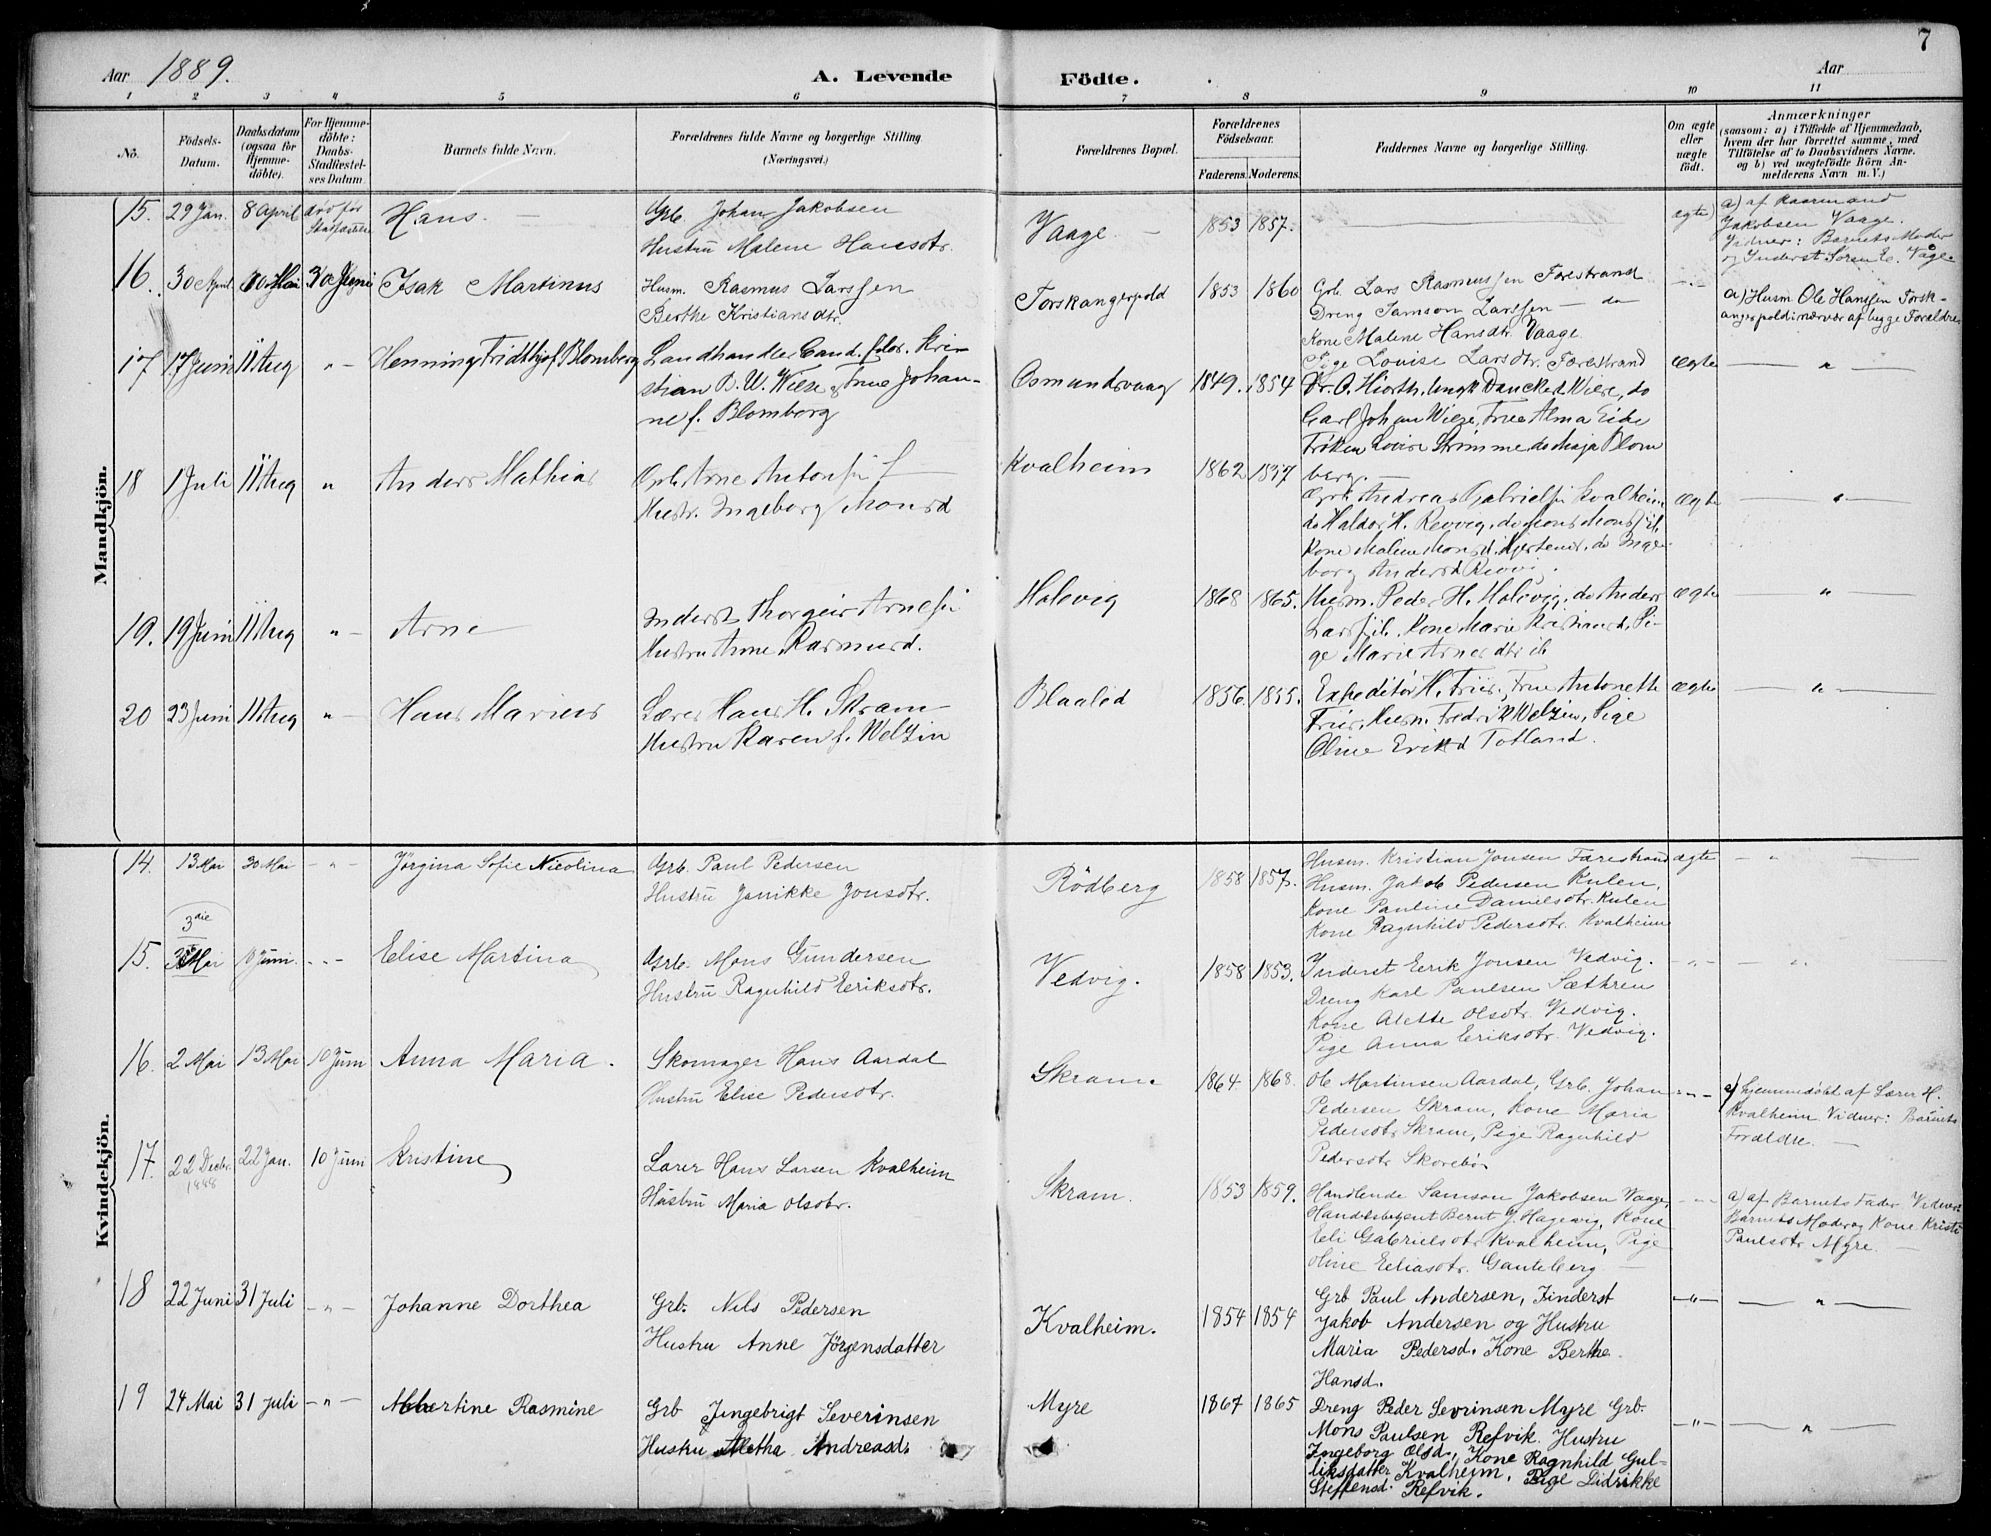 7
Aar 1889.
A. Levende Födte.
Aar
1 2 3 4 5 6 7 8 9 10 11
No.
Födsels-
Datum.
Daabsdatum
(ogsaa for
Hjemme-
döbte).
For Hjemme-
döbte:
Daabs-
Stadfæstel-
ses Datum.
Barnets fulde Navn.
Forældrenes fulde Navne og borgerlige Stilling
(Næringsvei.)
Forældrenes Bopæl.
Forældrenes
Födselsaar.
Faderens. Moderens.
Faddernes Navne og borgerlige Stilling.
Om ægte
eller
uægte
födt.
Anmærkninger
(saasom: a) i Tilfælde af Hjemmedaab,
hvem der har forrettet samme, med
Tilföielse af to Daabsvidners Navne,
og b) ved uægtefödte Börn An-
melderens Navn m. V.)
Mandkjön.
15. 29 Jan. 8 April död før
Stadfæstelse
Hans. —
Grb. Johan Jakobsen
Hustru Malene Hansdtr.
Vaage —
1853 1857.
ægte
a) af Kaarmand
Jakobsen Vaage.
Vidner: Barnets Moder
og Inderst Sören E. Våge.
16. 30 April 10 Mai 30 Juni Isak Martinus
Husm. Rasmus Larssen
Berthe Kristiansdtr.
Torskangerpold
1853 1860
Grb. Lars Rasmussen Færestrand
Dreng Samson Larssen — do
Kone Malene Hansdtr. Vaage
Pige Louise Larsdtr. Færestrand
-"-
a) Husm Ole Hanssen Torsk-
angerpold i nærvær af begge Forældre
17 17 Juni 11 Aug " — Henning Fridthjof Blomberg
Landhandler Cand. filos. Kri-
stian B. W. Wiese & Frue Johan-
ne f. Blomberg
Osmundsvaag
1849. 1854
Dr. O. Hiorth, Ungk Danckert Wiese, do
Carl Johan Wiese, Frue Alma Eide
Frøken Lovise Strømme do Maja Blom
berg.
Ægte
— " —
18 1 Juli 11 Aug " Anders Mathias
Grb Arne Antonsen
Hustr. Ingeborg Monsd
Kvalheim
1862 1857
Grb. Andreas Gabrielsen Kvalheim
do Haldor H. Revvig, do Mons Mons ib,
Kone Malene Monsd. do Inge-
borg Andersd Revvig.
Ægte
— " —
19. 19 Juni 11 Aug " — Arne
Inderst Thorgeir Arnesen
Hustru Anne Rasmusd.
Halevig
1868 1865.
Husm. Peder H. Halevig, do Anders
Lars ib. Kone Marie Kristiansd, Pi-
ge Marie Arnesdtr ib
Ægte
— " —
20 23 Juni 11 Aug " — Hans Marius
Lærer Hans H. Skram
Hustru Karen f. Welzin
Blaalid
1856. 1855.
Expeditør H. Friis, Frue Antonette
Friis, Husm. Fredrik Welzin, Pige
Oline Eriksd Totland.
Ægte
— " —
Kvindekjön.
14. 13 Mai 30 Mai - " - Jörgina Sofie Nicolina
Grb. Paul Pedersen
Hustru Janikke Jonsdtr.
Rödberg
1858 1857.
Husm. Kristian Jonsen Færestrand
Husm. Jakob Pedersen Kulen,
Kone Pauline Danielsdtr. Kulen
Kone Ragnhild Pedersdtr. Kvalheim
ægte
— " —
3die
15. Mai 10 Juni. - " - Elise Martina
Grb. Mons Gundersen
Hustru Ragnhild Eriksdtr.
Vedvig.
1858 1853.
Inderst Eerik Jonsen Vedvig.
Dreng Karl Paulsen Sæthren
Kone Alette Olsdtr. Vedvig.
Pige Anna Eriksdtr. Vedvig.
- " -
— " —
16. 2 Mai 13 Mai 10 Juni Anna Maria.
Skomager Hans Aardal
Hustru Elise Pedersdtr.
Skram.
1864. 1868.
Ole Martinsen Aardal, Grb. Johan
Pedersen Skram, Kone Maria
Pedersdtr Skram, Pige Ragnhild
Pedersdtr Skorebø
- " -
a) hjemmedöbt af Lærer H.
Kvalheim Vidner: Barnets
Forældre. —
17. 22 Decbr.
1888
22 Jan. 10 Juni Kristine
Lærer Hans Larsen Kvalheim
Hustru Maria Olsdtr.
Skram.
1853 1859.
Handlende Samson Jakobsen Vaage,
Handelsbetjent Bernt J. Hagevig, Kone
Eeli Gabrielsdtr. Kvalheim, Pige
Oline Eeliasdtr. Gauteberg —
- " -
a) af Barnets Fader Vidner:
Barnets Moder og Kone Kristi
Paulsdtr Myre. —
18 22 Juni 31 Juli - " - Johanne Dorthea
Grb. Nils Pedersen
Hustru Anne Jörgensdatter
Kvalheim.
1854 1854
Grb Paul Andersen, Jinderst
Jakob Andersen og Hustru
Maria Pedersd. Kone Berthe
Hansd.
- " -
— " —
19 24 Mai 31 Juli - " - Albertine Rasmine
Grb Jngebrigt Severinsen
Hustru Aletha Andreasd.
Myre
1867 1865
Dreng Peder Sevrinsen Myre Grb.
Mons Paulsen Refvik. Hustru
Ingeborg Olsd., Kone Ragnhild Gul-
liksdatter Kvalheim, Pige Didrikke
Steffensd. Refvik.
- " -
— " —